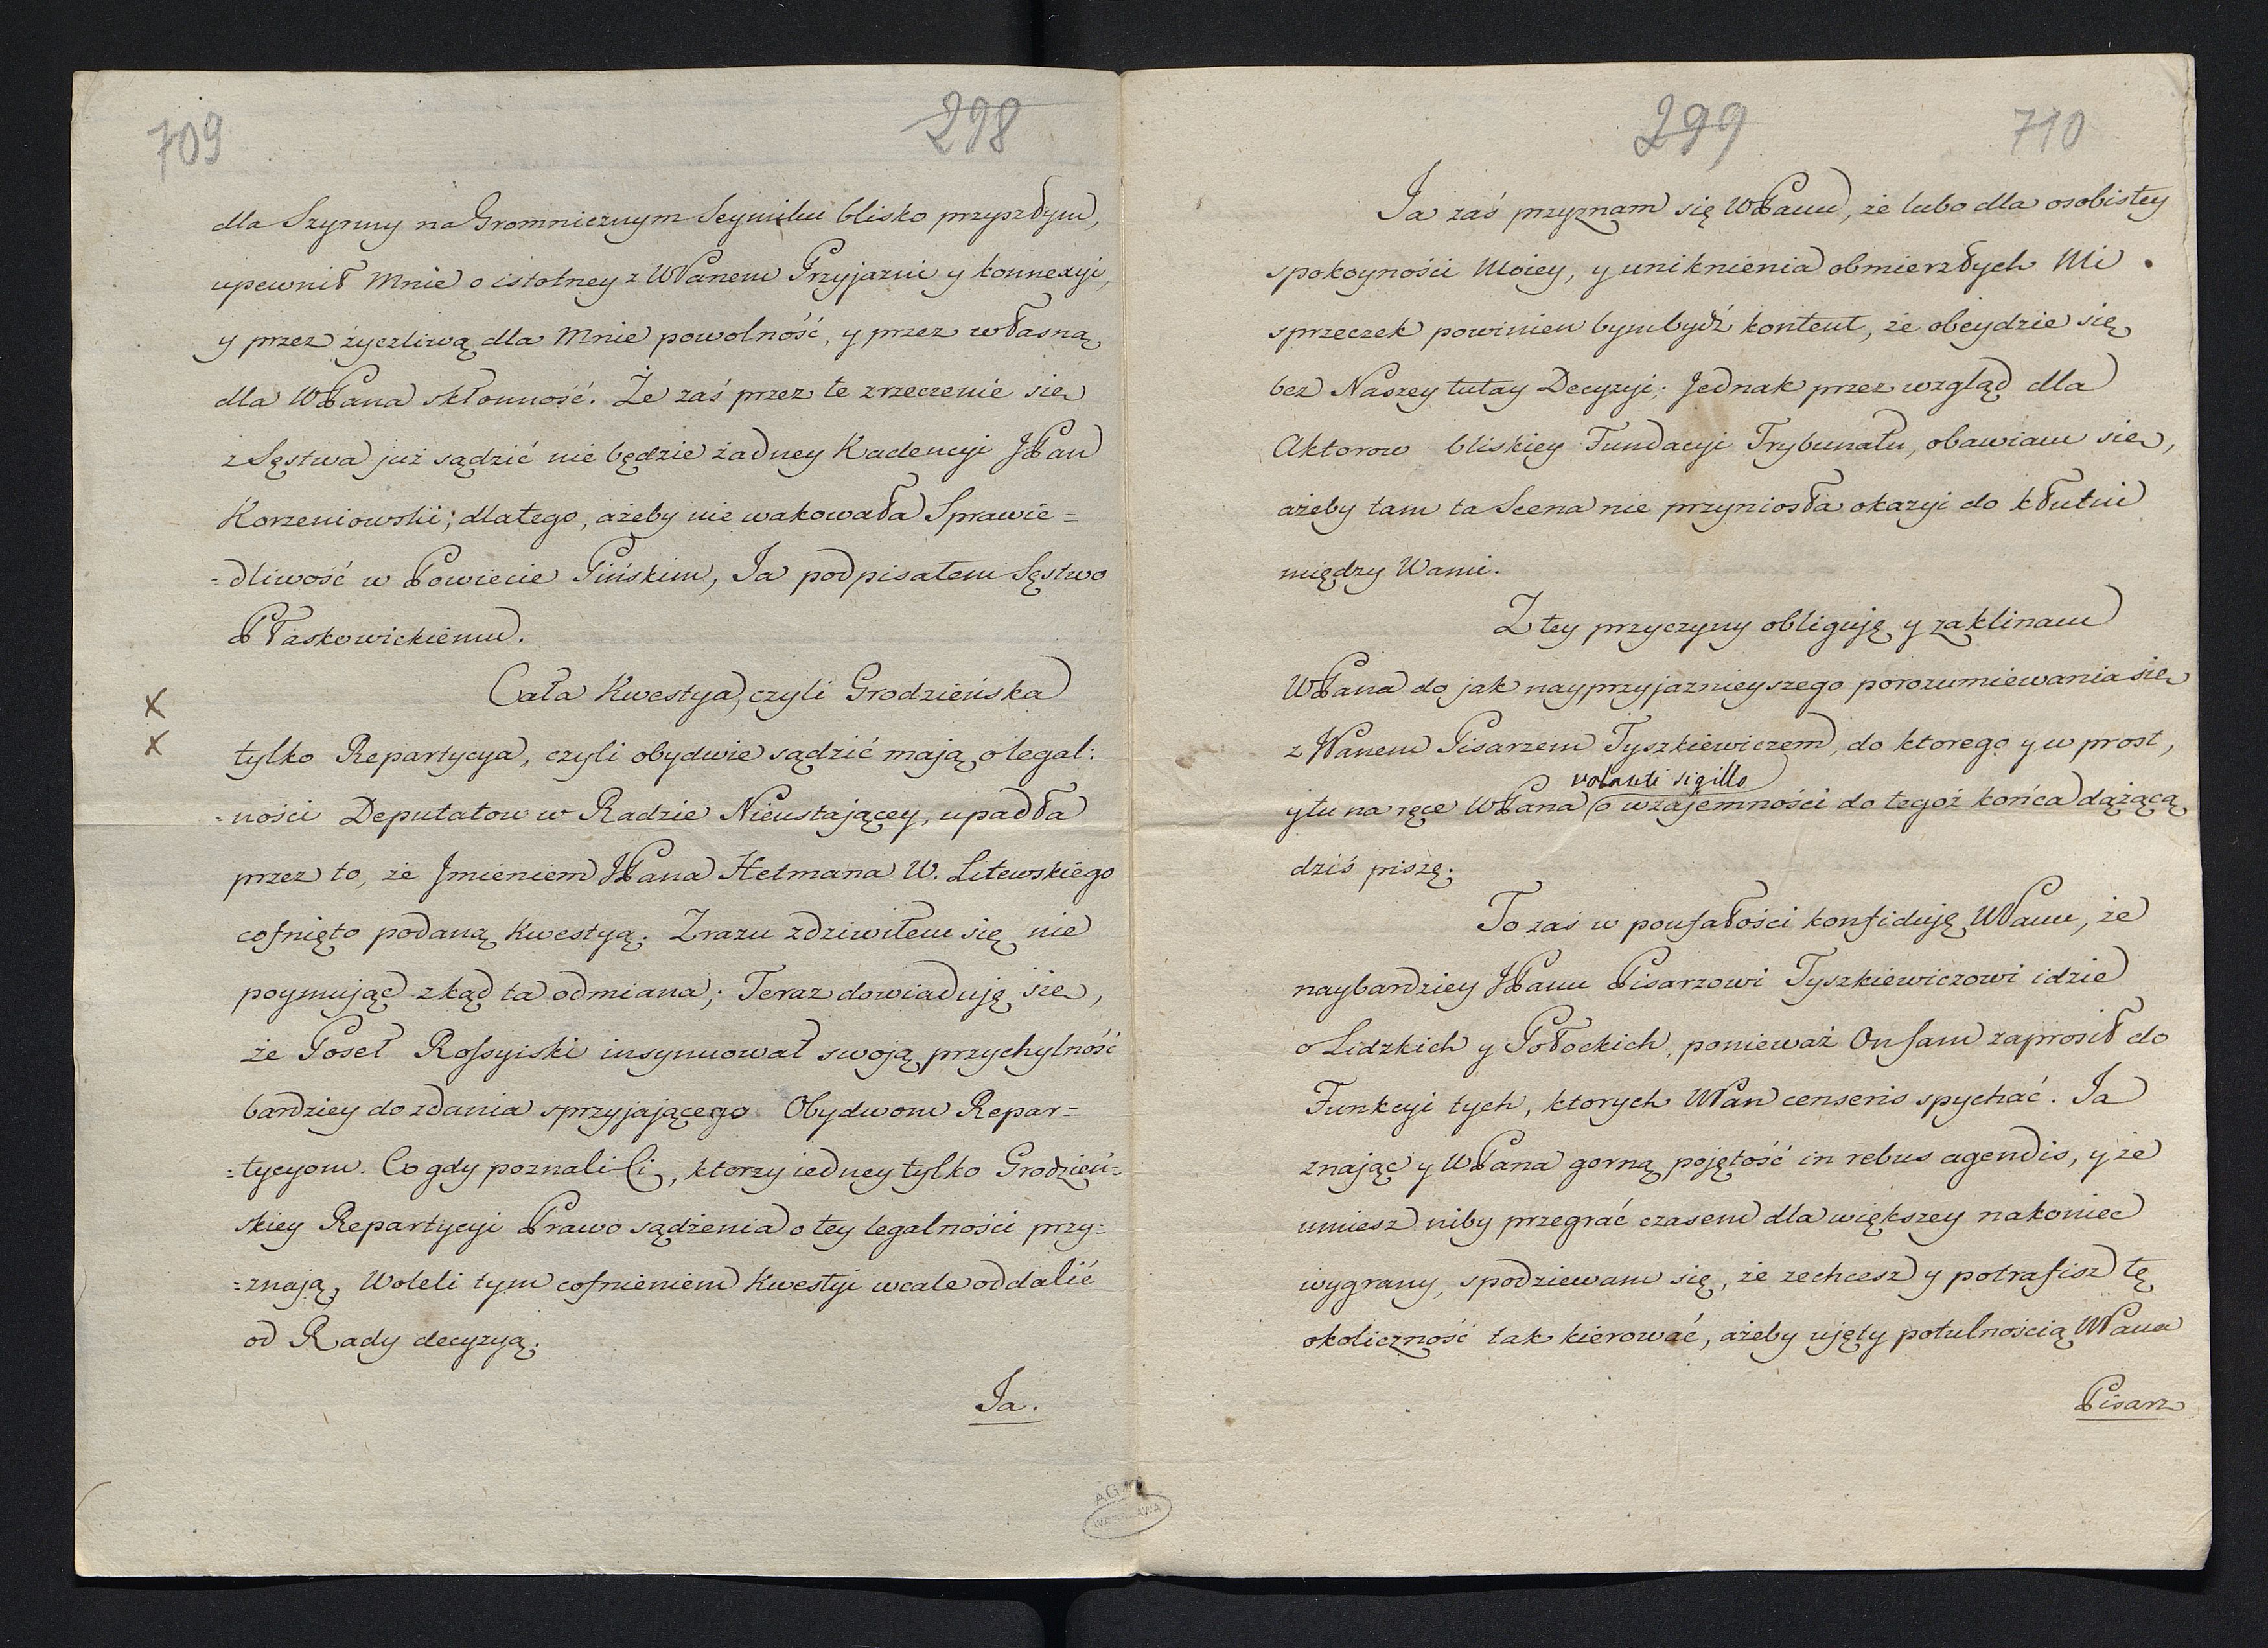 709
298
dla Szyrmy na Gromnicznym Seymiku blisko przyszłym,
upewnił Mnie o istotney z WPanem Przyjazni y konnexyi,
y przez życzliwą dla Mnie powolność, y przez własną
dla WPana skłonność. Że zaś przez te zrzeczenie się
z Sęstwa już sądzić nie będzie żadney Kadencyi JPan
Korzeniowski; dlatego, ażeby nie wakowała Sprawie=
=dliwość w Powiecie Pińskim, Ja podpisałem Sęstwo
Płaskowickiemu.
Cała Kwestya, czyli Grodzieńska
tylko Repartycya, czyli obydwie sądzić mają o legal:
=ności Deputatow w Radzie Nieustaiącey, upadła
przez to, że Jmieniem JPana Hetmana W. Litewskiego
cofnięto podaną Kwestyą. Zrazu zdziwiłem się nie
poymując zkąd ta odmiana; Teraz dowiaduję się,
że Poseł Rossyiski insynuował swoją przychylność
bardziey do zdania sprzyjającego Obydwom Repar=
=tycyom. Co gdy poznali Ci, ktorzy iedney tylko Grodzień=
skiey Repartycyi Prawo sądzenia o tey legalności przy=
=znają, Woleli tym cofnieniem Kwestyi wcale oddalić
od Rady decyzyą.
Ja.
AGAD
WARSZAWA
299
710
Ja zaś przyznam się WPanu, że lubo dla osobistey
spokoyności Moiey, y uniknienia obmierzłych Mi
sprzeczek powinien bym bydź kontent, że obeydzie się
bez Naszey tutay Decyzyi; Jednak przez wzgląd dla
Aktorow bliskiey Fundacyi Trybunału, obawiam się,
ażeby tam ta Scena nie przyniosła okazyi do kłutni
między Wami.
Z tey przyczyny obliguję y zaklinam
WPana do jak nayprzyjaznieyszego porozumiewania się
z JPanem Pisarzem Tyszkiewiczem, do ktorego y w prost,
volanti sigillo
y tu na ręce WPana o wzajemności do tegoż końca dążącą
dziś piszę.
To zaś w poufałości konfiduję WPanu, że
naybardziey JPanu Pisarzowi Tyszkiewiczowi idzie
o Lidzkich y Połockich, ponieważ On sam zaprosił do
Funkcyi tych, ktorych WPan censeris spychać. Ja
znając y WPana gorną pojętość in rebus agendis, y że
umiesz niby przegrać czasem dla większey nakoniec
wygrany, spodziewam się, że zechcesz y potrafisz tę
okoliczność tak kierować, ażeby ujęty potulnością WPana
Pisarz